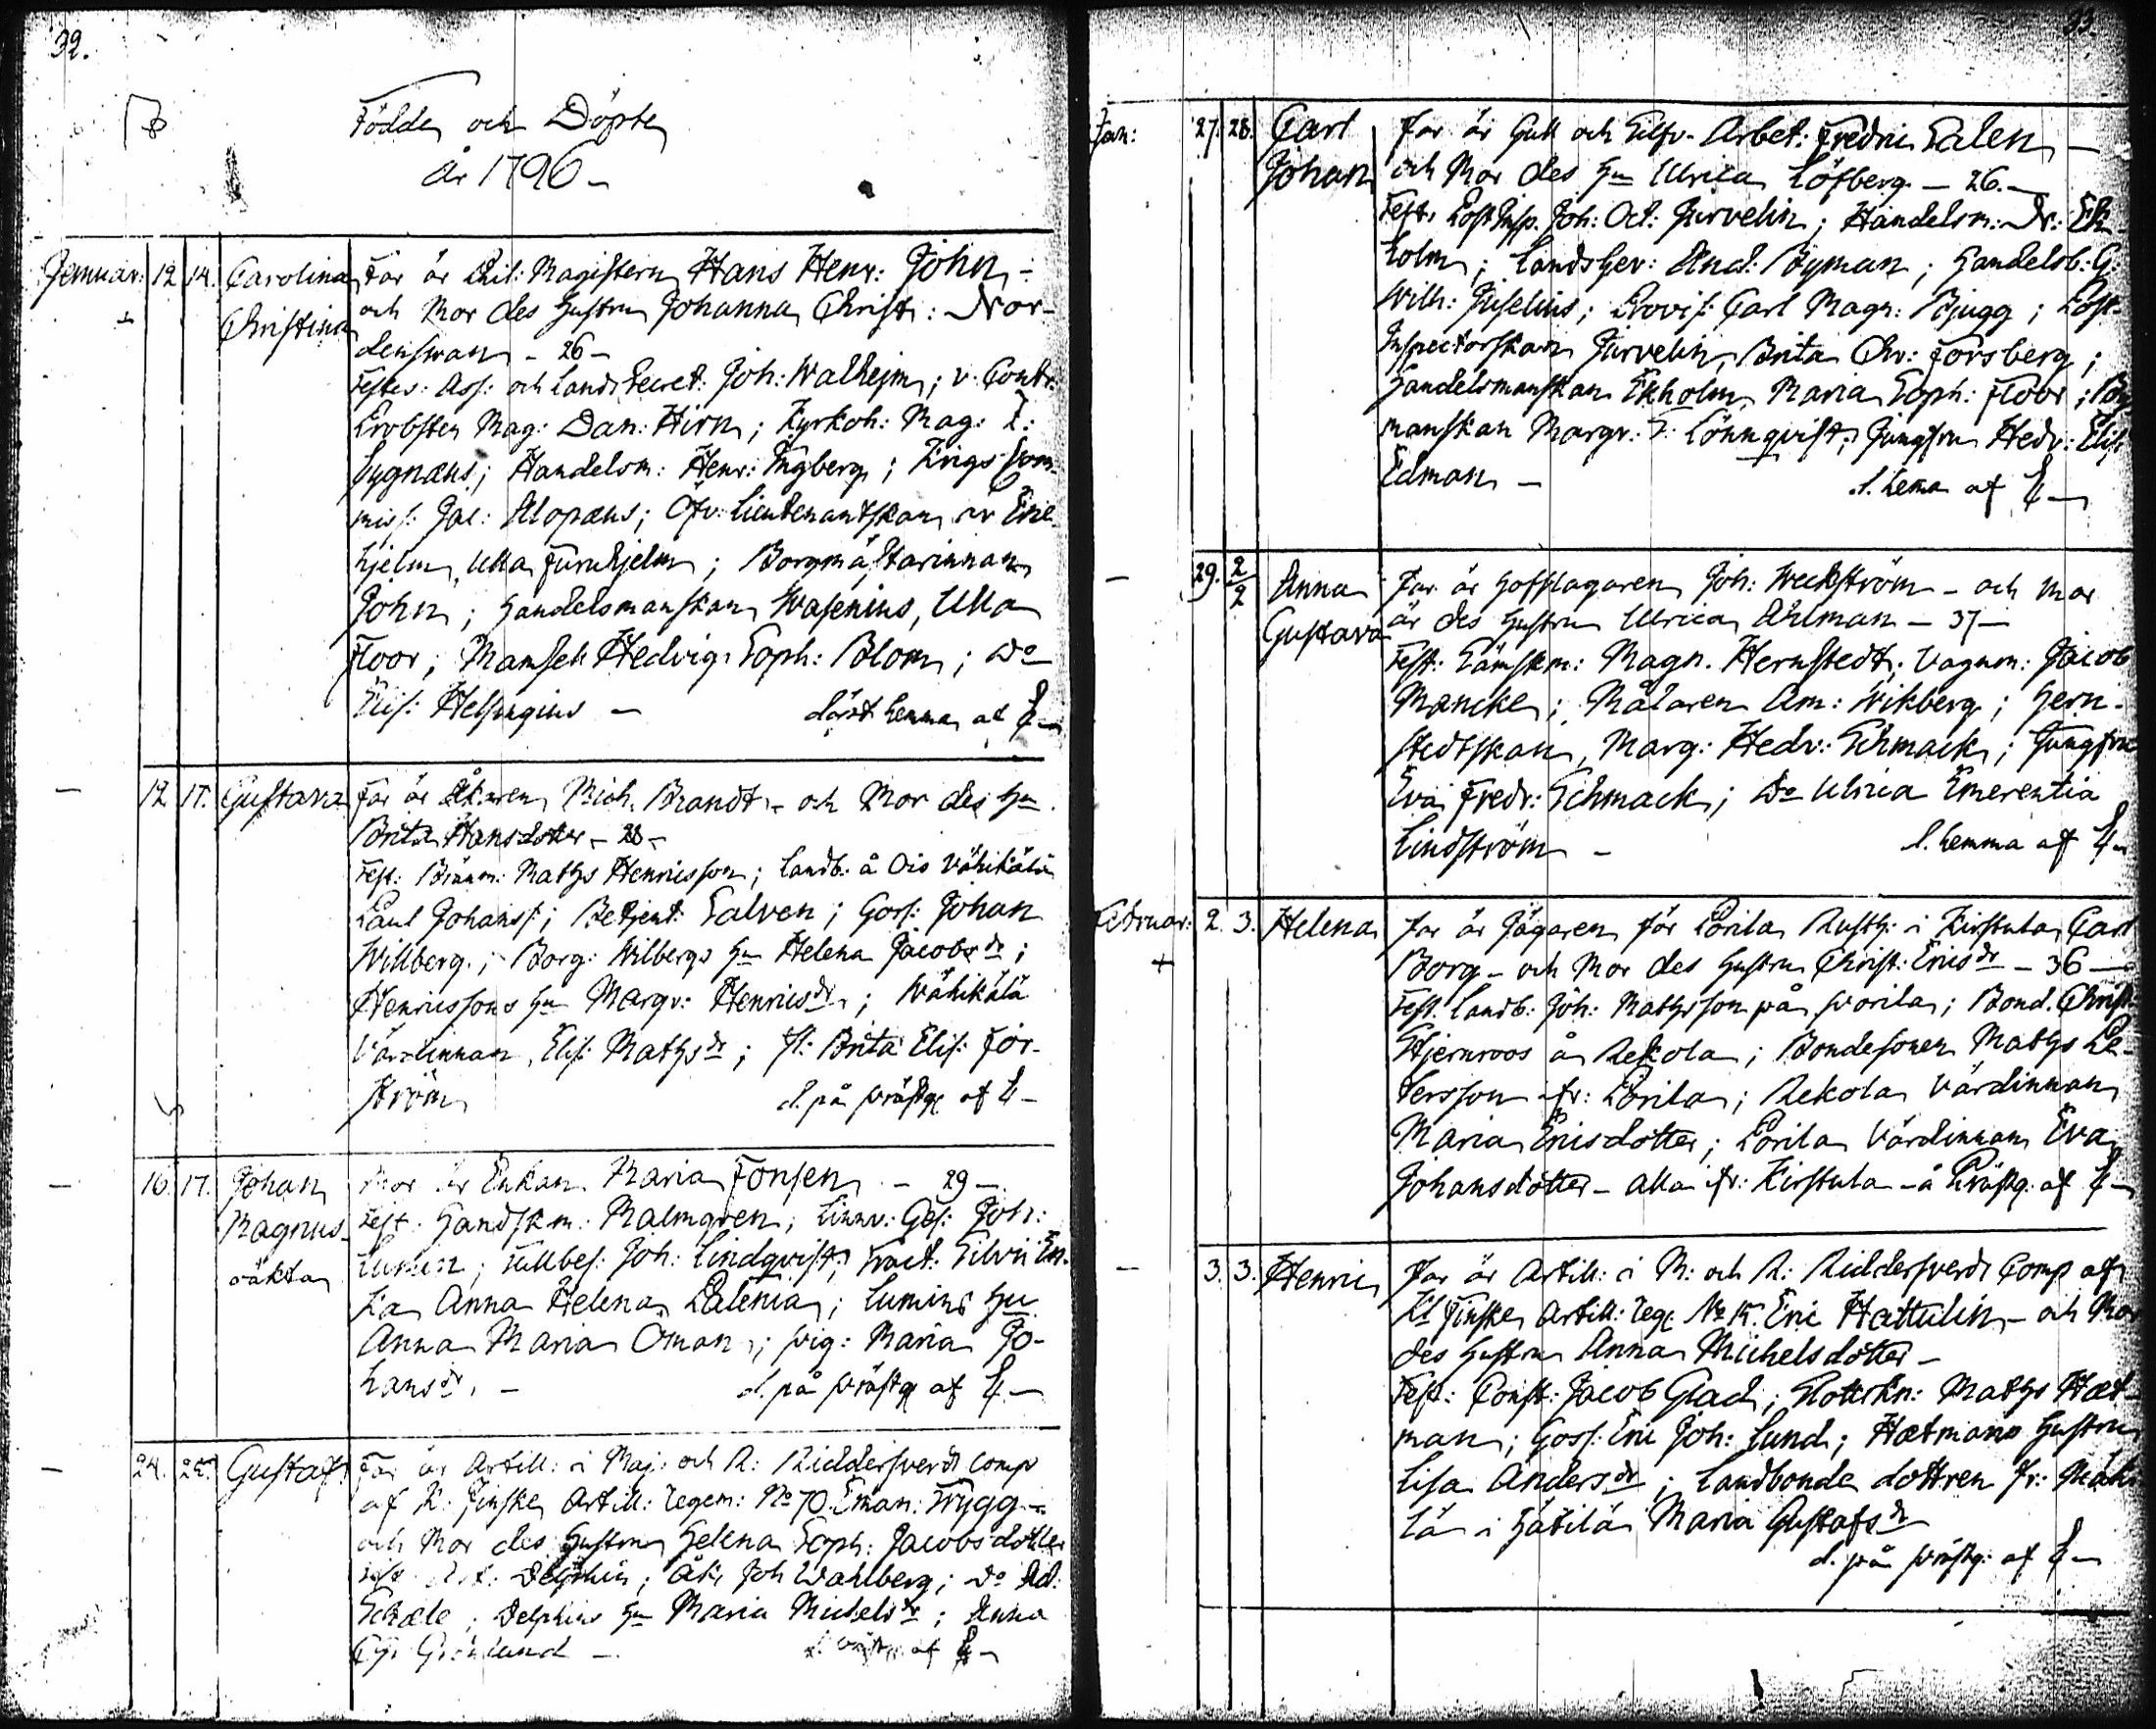 32.
Födde och Döpte
År 1796 –
Januar: 12 14. Carolina Christina
Far är Phil: Magistern Hans Henr: John –
och Mor des Hustru Johanna Christ: Nor-
denswan – 26 –
Testes: Ass: och Lands Secret: Joh: Walheim; v. Contr.
Probsten Mag: Dan: Hirn; Kyrkoh: Mag: Z:
Cygnæus; Handelsm: Henr: Tngberg; Krigs Com-
miss: Jac: Alopæus; Öfv: Lieutenantskan
hjelm, Ulla Furuhjelm; Borgmästarinnan
John; Handelsmanskan Wasenius, Ulla
Floor; Mamsell Hedvig Soph: Blom; Do
Elis: Helsingius – döpt hemma af
12 17. Gustava
Far är Åkaren Mich. Brandt – och Mor des Hu
Brita Hansdotter – 28 –
Test: Brännm: Maths Henricsson; Landb: å Ois Vähikälä
Paul Johanss:; Betjent: Salven; Goss: Johan
Willberg; Borg: Wilbergs Hu Helena Jacobsdr;
Henricssons Hu Margr: Henricsdr; Wähikälä
Värdinnan, Elis: Mathsdr; fl: Brita Elis: For-
ström d. på prästg af
16. 17. Johan Magnus
oäkta
Mor är Enkan Maria Fonsen – 29 –
Test: Handskm: Malmgren; Linnv: Ges: Joh:
Lumin; Tullbes: Joh: Lindqvist; Tract: Silvii En-
ka Anna Helena Palenia; Lumins Hu
Anna Maria Öman; pig: Maria Jo-
hansdr. – d. på prästg af
24. 25. Gustaf
Far är Artill: i Maj: och R: Riddersverds Comp
af K: Finska Artill: Regem: No 70. Eman: Trygg –
och Mor des Hustru Helena Soph: Jacobsdotter
Delphin; Åk: Joh Wahlberg; Do Ad:
Schæle; Delphins Hu Maria Michelsdr; Anna
Grönlund – af
33.
Jan: 27. 28. Carl Johan
Far är Gull och Silfv. Arbet: Fredric Salen –
och Mor des Hu Ulrica Löfberg – 26. –
Test: Post Insp. Joh: Oct: Jurvelin; Handelsm: Nr: Ek-
holm; Landsger: And: Byman; Handelsb: G:
Wilh: Juselius; Provis: Carl Magn: Bjugg; Post-
Inspectorskan Jurvelin, Brita Chr: Forsberg;
Handelsmanskan Ekholm, Maria Soph: Floor; By-
manskan Margr: Lönnqvist; Jungfru Hedv: Elis
Edman – d. hema af
29. 2/2 Anna Gustava
Far är Hofslagaren Joh: Weckström – och Mor
är des Hustru Ulrica Ahlman – 37 –
Test: Sämskm: Magn. Hernstedt; Vagnm: Jacob
Mancke; Målaren Am: Wikberg; Hern-
stedtskan, Marg: Hedv: Schmack; Jungfru
Eva Fredr: Schmack; Do Ulrica Emerentia
Lindström – d. hemma af
Februar: 2. 3. Helena
Far är Jägaren för Porila Rusth: i Kirstula Carl
Borg – och Mor des Hustru Christ: Ericsdr – 36 –
Test. Landb: Joh: Mathsson på Porila; Bond. Christ:
Stjernroos å Rekola; Bondesonen Maths Pe-
tersson fr: Porila; Rekola Värdinnan
Maria Ericsdotter; Porila Värdinnan Eva
Johansdotter – alla fr: Kirstula – å Prästg: af
3. 3. Henric
Far är Artill: i M: och R: Riddersverds Comp af
Kl Finska Artill: reg: No 15. Eric Hattulin – och Mor
des Hustru Anna Michelsdotter –
Test: Const: Jacob Glad; Slottskn: Maths Hæt-
man; Goss: Eric Joh: Lund; Hætmans Hustru
Lisa Andersdr; Landbonde dottren fr:
i Hätilä Maria Gustafsdr
d. på prästg: af